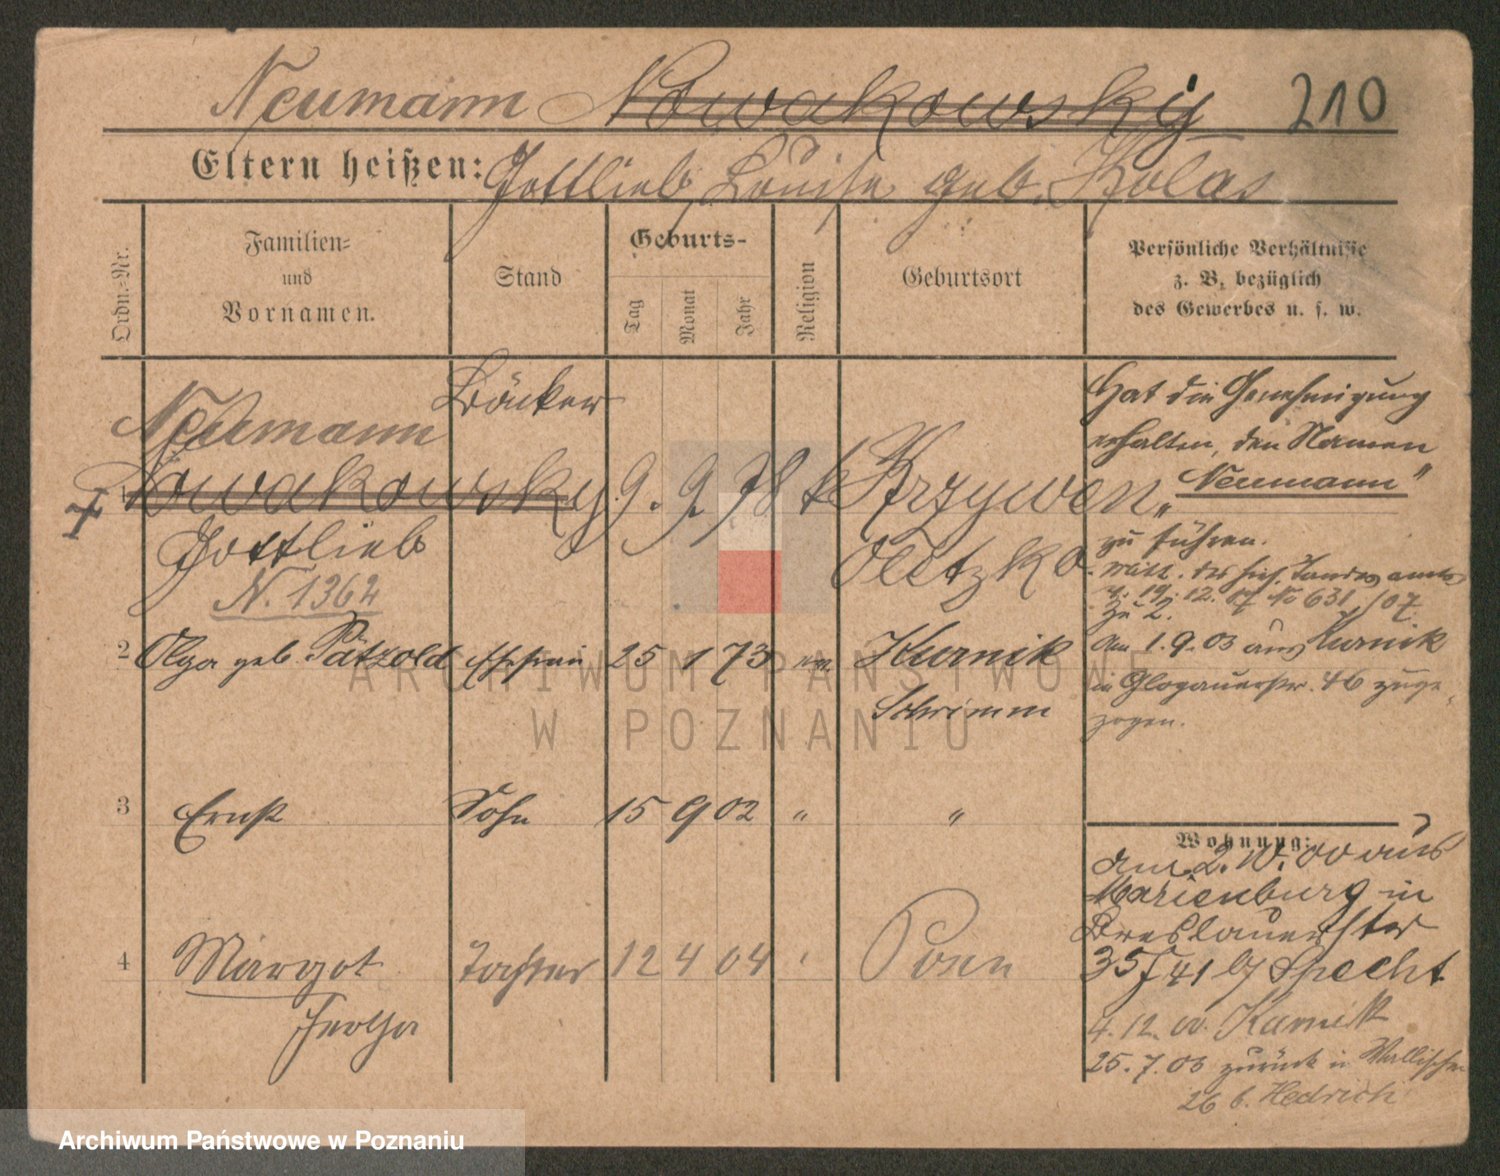 Neumann Nowakowsky 210
Eltern heißen: Gottlieb, Louise geb. Kolas
Ordn.-Nr.
Familien- und Vornamen.
Stand
Geburts-
Tag
Monat
Jahr
Religion
Geburtsort
Persönliche Verhältnisse
z. B. bezüglich
des Gewerbes u. s. w.
Neumann Bäcker
1 Nowakowsky 9. 9 78 Krzywen
Gottlieb Oletzko
N. 1362
Hat die Genehmigung
erhalten, den Namen
„Neumann"
zu führen.
19. 12. 07 No 631/07
Zu 2.
Am 1.9.03 aus Kurnik
in Glogauerstr. 46 zuge-
zogen.
2 Olga geb. Pätzold Ehefrau 25 1 73 ev. Kurnik
Schrimm
3 Ernst Sohn 15 9 02 " "
4 Margot Tochter 12 4 04 Posen
Wohnung:
am 2. 10. 00 aus
Marienburg in
Breslauerstr
35/41 b/ Specht
4. 12. 00 Kurnik
25. 7. 03 zurück in Wallischei
26 b. Hedrich
ARCHIWUM PAŃSTWOWE
W POZNANIU
Archiwum Państwowe w Poznaniu